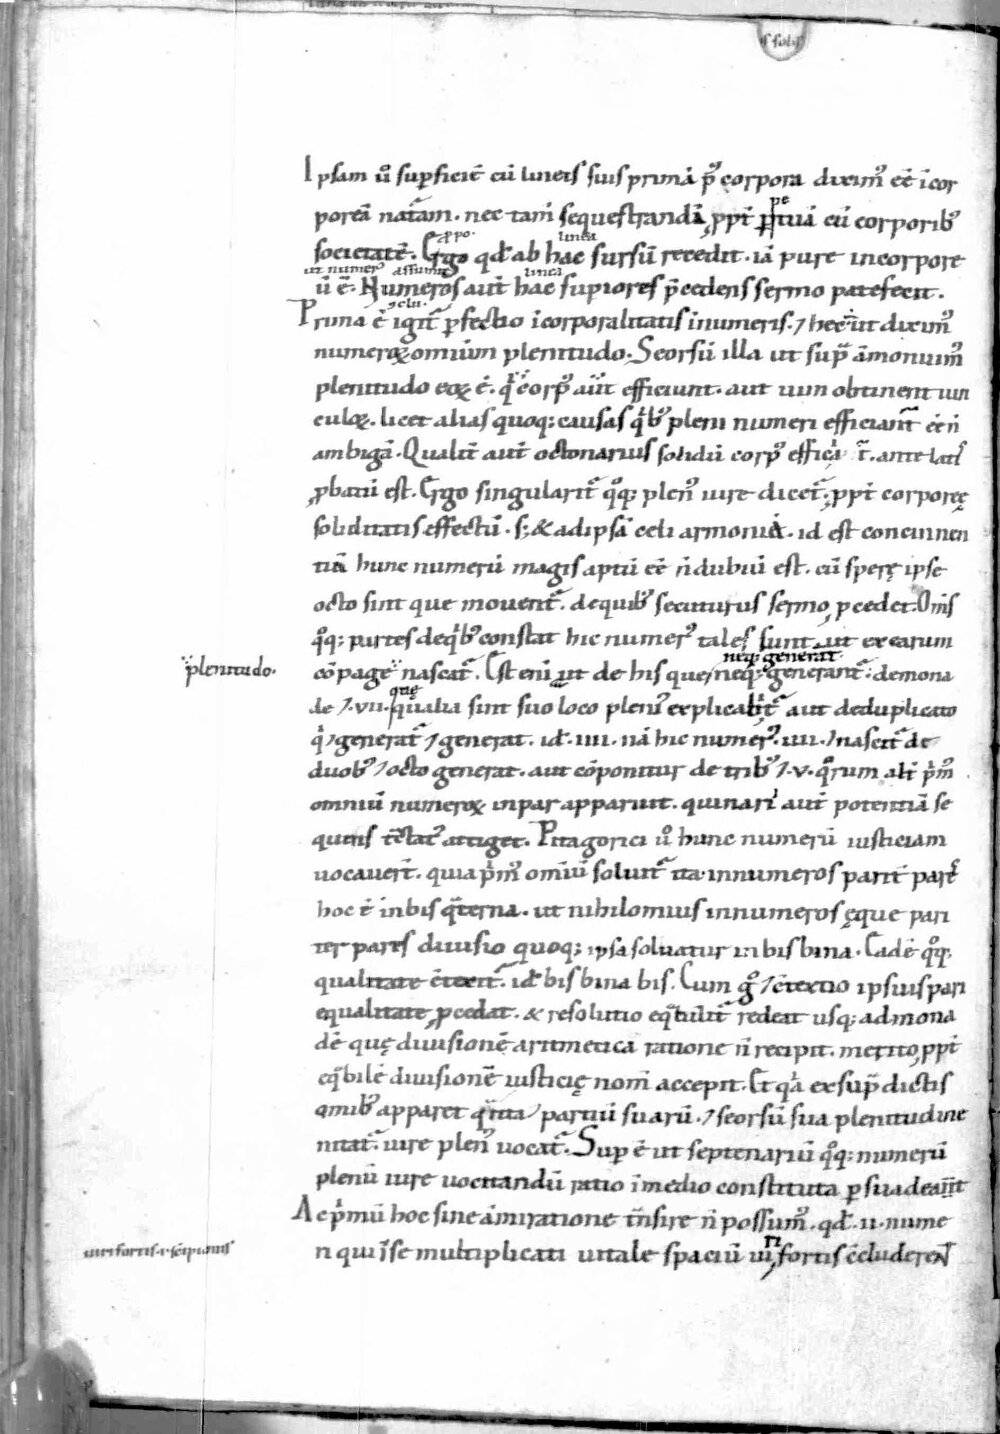 s solis
Ipsam u͛o sup̱ficiē cū lineis suis primā p᷒ corpora diximꝰ eē icor
poreā natām. nec tam̄ sequestrandā ꝓpt̄ p̱petuā cū corporibꝰ
ꝓpo. linea
societatē. Ergo qđ ab hac sursū recedit. iā pure incorpore
ut numerꝰ assumit linea
ū ē. Numeros aut̄ hac supiores p̄cedens sermo patefecit.
ↄclu.
Prima ē igit᷒ p̱fectio icorporalitatis inumeris. ⁊ hec ut diximꝰ
numeroꝝ omnium plenitudo. Seorsū illa ut sup̄ āmonuimꝰ
plenitudo eoꝝ ē. q̄ corpꝰ aut̄ efficiunt. aut uim obtinent uin
culoꝝ. licet alias quoq; causas qͥbꝰ pleni numeri efficiant᷒ eē n̄
ambigā. Qualit̄ aut̄ octonarius solidū corpꝰ efficiat᷒. ante latꝭ
ꝓbatū est. Ergo singularit᷒ qͦq; plenꝰ iure dicet᷒. ꝓpt̄ corporeę
soliditatis effectū. s; & ad ipsā celi armoniā. id est concinnen
tiā hunc numerū magis aptū eē n̄ dubiū est. cū sperę ipse
octo sint que mouent᷒. de quibꝰ secuturus sermo ꝓcedet. Om̄s
qͦq; partes de qͥbꝰ constat hic numerꝰ tales sunt ut ex earum
neq; generat
plenitudo.
cōpage nascat᷒. Est eni ut de his que neq; generant᷒. de mona
quę
de ⁊ .vii. qualia sint suo loco pleniꝰ explicabit᷒ aut de duplicato
qͥ ⁊ generat᷒ ⁊ generat. id .iiii. nā hic numerꝰ .iiii. ⁊ nascit᷒ de
duobꝰ ⁊ octo generat. aut cōponitur de tribꝰ ⁊ .v. qͦrum alt̄ pͥmꝰ
omniū numeroꝝ inpar apparuit. quinari aut̄ potentiā se
quens tēctatꝰ attiget. Pitagorici u͛o hunc numerū iusticiam
uocauer̄t. quia pͥmꝰ omiū soluit᷒ ita innumeros parit̄ pares
hoc ē in bis qͣterna. ut nihilominus innumeros ęque pari
ter pares diuisio quoq; ipsa soluatur in bis bina. Eadē qͦq;
qualitate ↄtexit᷒. id bis bina bis. Cum g͛ ⁊ ↄtextio ipsius pari
equalitate ꝓcedat. & resolutio eqͣbilit̄ redeat usq; ad mona
dē quę diuisionē aritmetica ratione n̄ recipit. merito ꝓpt̄
eqͣbilē diuisionē iusticię nom̄ accepit. Et qͥa ex sup̄dictis
omibꝰ apparet qͣnta partiū suarū. ⁊ seorsū sua plenitudine
nitat᷒. iure plenꝰ uocat᷒. Sup̱ ē ut septenariū qͦq; numerū
plenū iure uocitandū ratio i medio constituta p̱suadeat
Ac pͥmū hoc sine āmiratione tͣnsire n̄ possumꝰ. qđ .ii. nume
ri
uiri fortis .i. scipionis
ri qui i se multiplicati uitale spaciū uiri fortis ↄcluderent